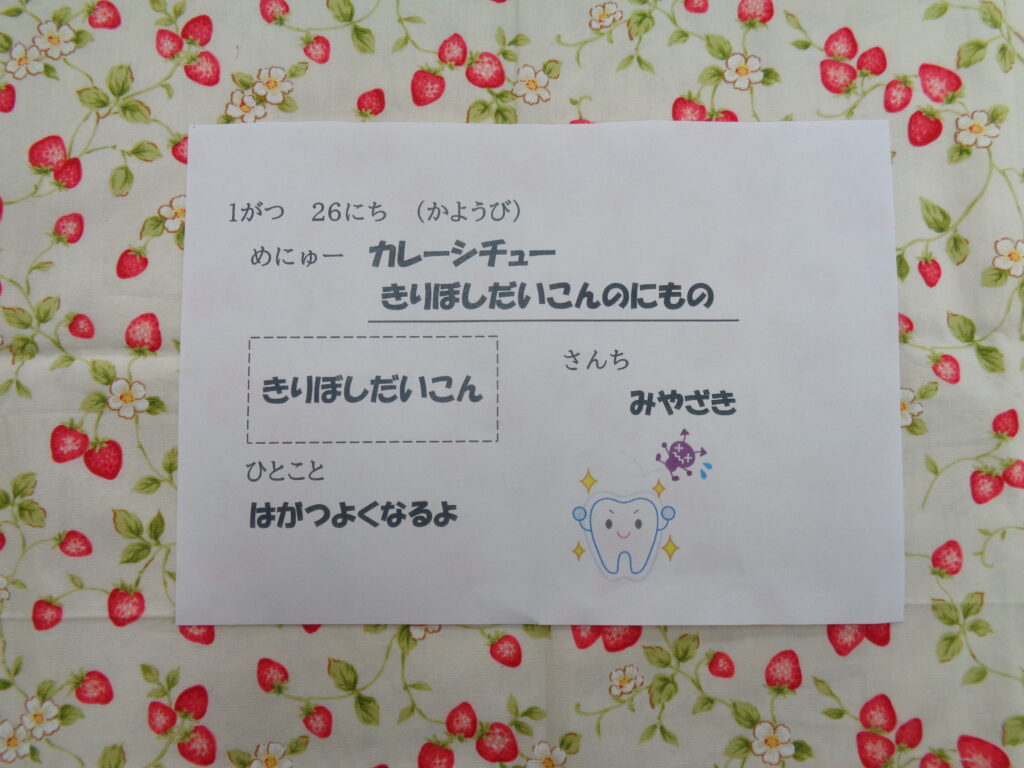 1がつ　26にち　（かようび）
めにゅー　カレーシチュー
きりぼしだいこんのにもの
きりぼしだいこん
さんち
みやざき
ひとこと
はがつよくなるよ